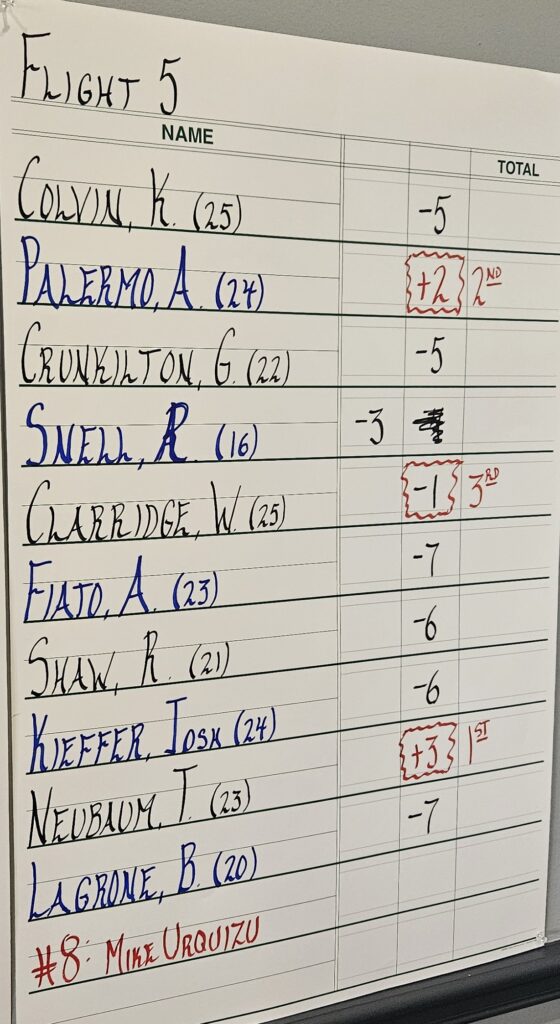 FLIGHT 5
NAME TOTAL
COLVIN, K. (25) -5
PALERMO, A. (24) +2 2ND
CRUNKILTON, G. (22) -5
SNELL, R. (16) -3
CLARRIDGE, W. (25) -1 3RD
FIATO, A. (23) -7
SHAW, R. (21) -6
KIEFFER, JOSH (24) -6
NEUBAUM, T. (23) +3 1ST
LAGRONE, B. (20) -7
#8: MIKE URQUIZU